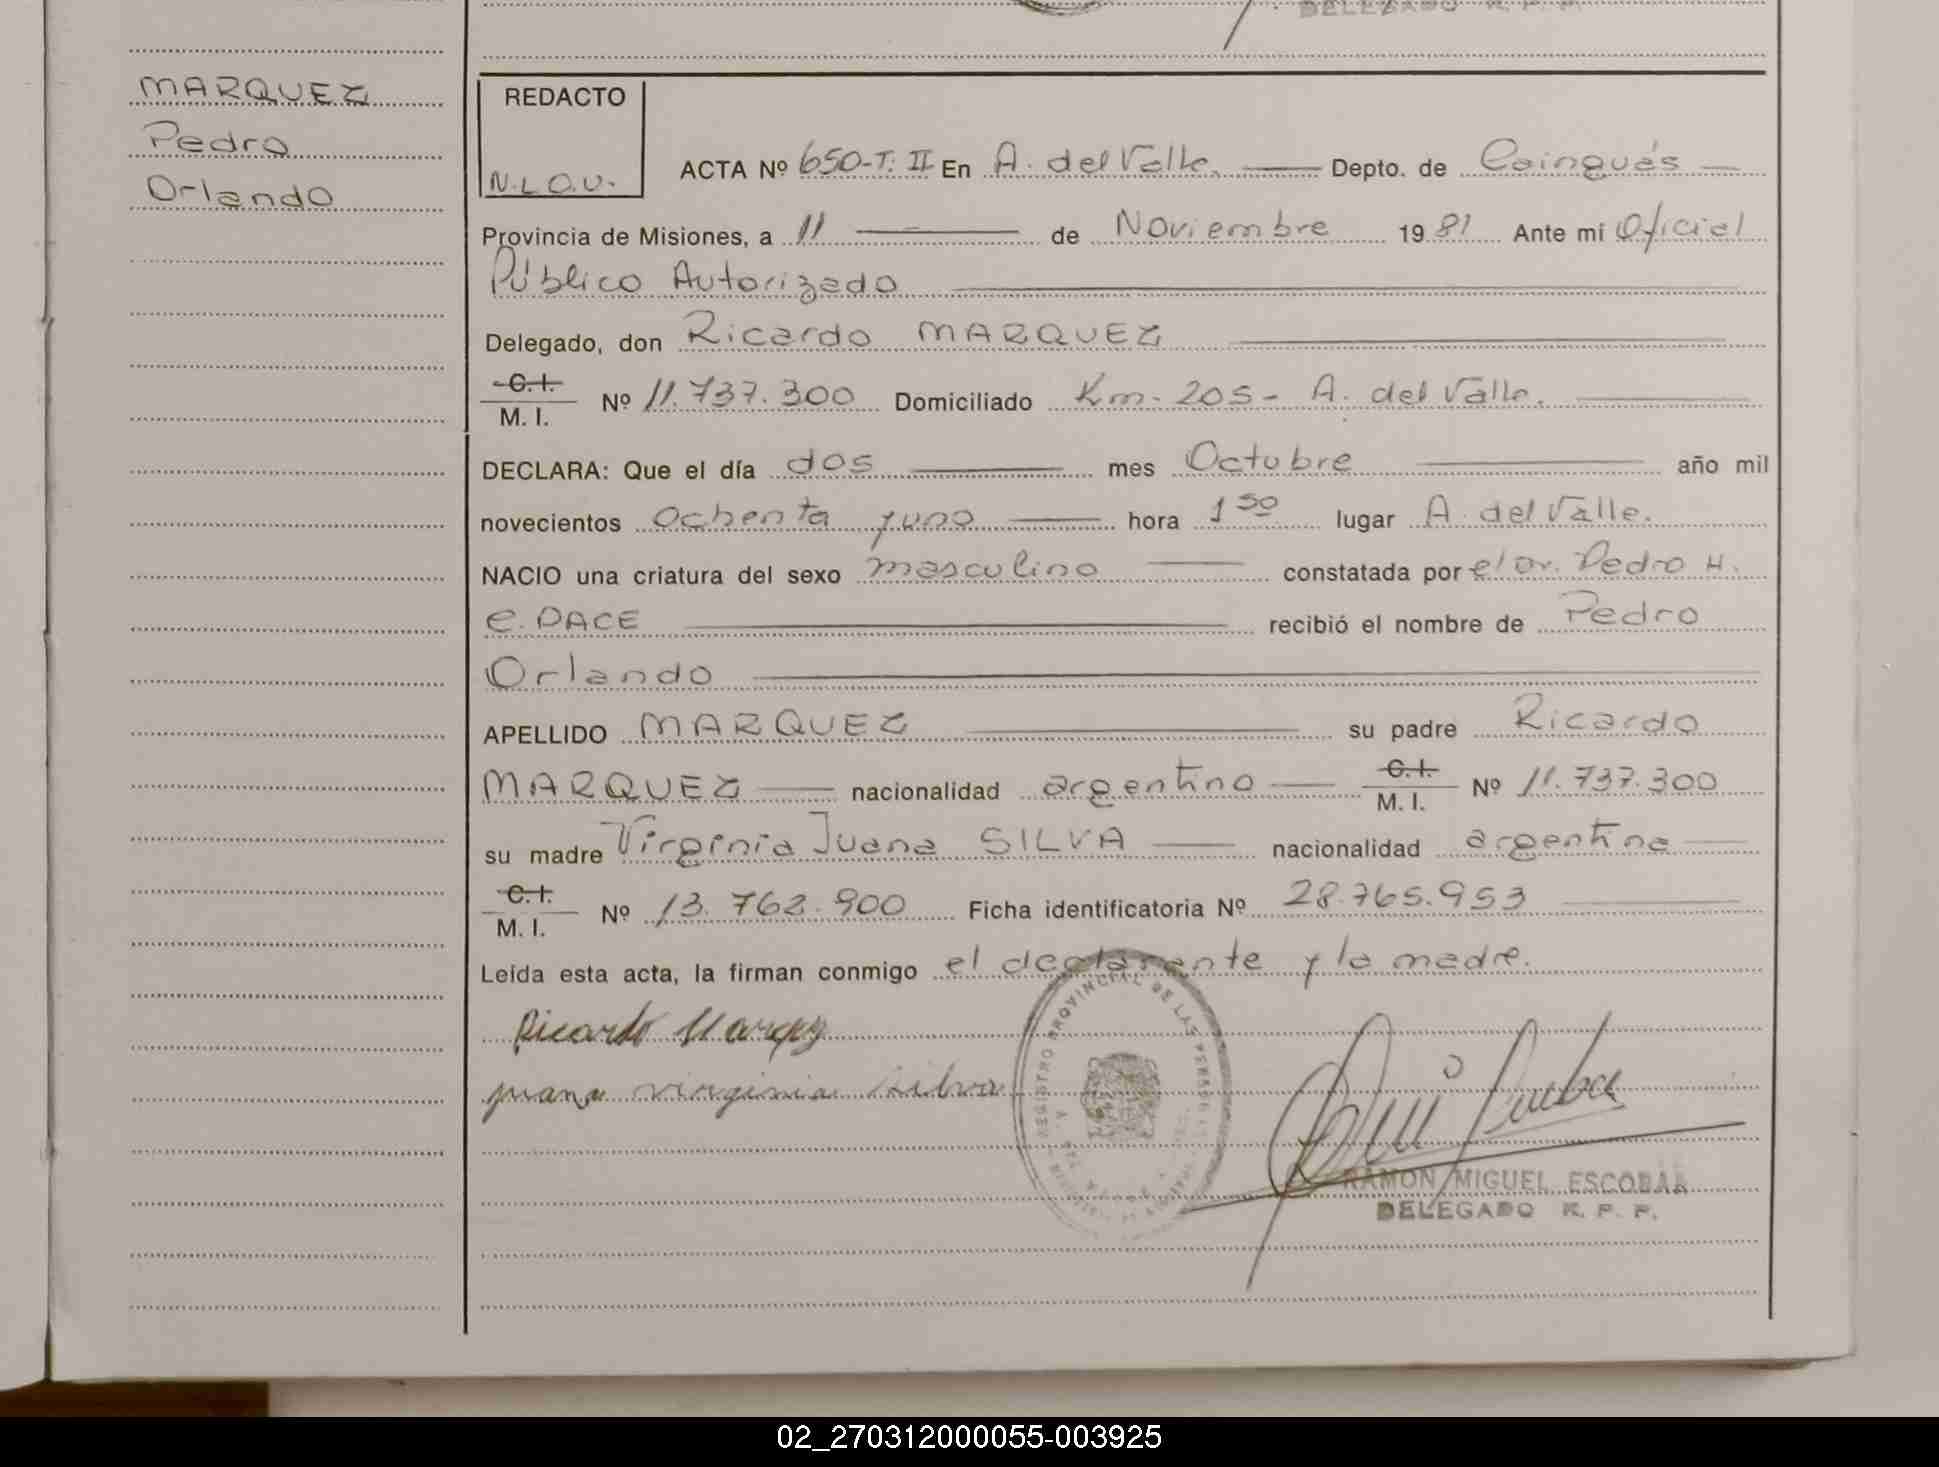 DELEGADO R. P. P.
MARQUEZ
Pedro
Orlando
REDACTO
N.L.O.U.
ACTA Nº 650-T. II En A. del Valle. Depto. de Cainguás
Provincia de Misiones, a 11 de Noviembre 1981 Ante mi Oficial
Público Autorizado
Delegado, don Ricardo MARQUEZ
C. I.
M. I.
Nº 11.737.300 Domiciliado Km. 205 - A. del Valle.
DECLARA: Que el día dos mes Octubre año mil
novecientos ochenta y uno hora 1 50 lugar A. del Valle.
NACIO una criatura del sexo masculino constatada por el Dr. Pedro H.
e. PACE recibió el nombre de Pedro
Orlando
APELLIDO MARQUEZ su padre Ricardo
MARQUEZ nacionalidad argentino C. I. M. I. Nº 11.737.300
su madre Virginia Juana SILVA nacionalidad argentina
C. I.
M. I.
Nº 13.762.900 Ficha identificatoria Nº 28.765.953
Leída esta acta, la firman conmigo el declarante y la madre.
Ricardo Marquez
juana virginia silva
REGISTRO PROVINCIAL DE LAS PERSONAS
RAMON MIGUEL ESCOBAR
DELEGADO R. P. P.
02_270312000055-003925